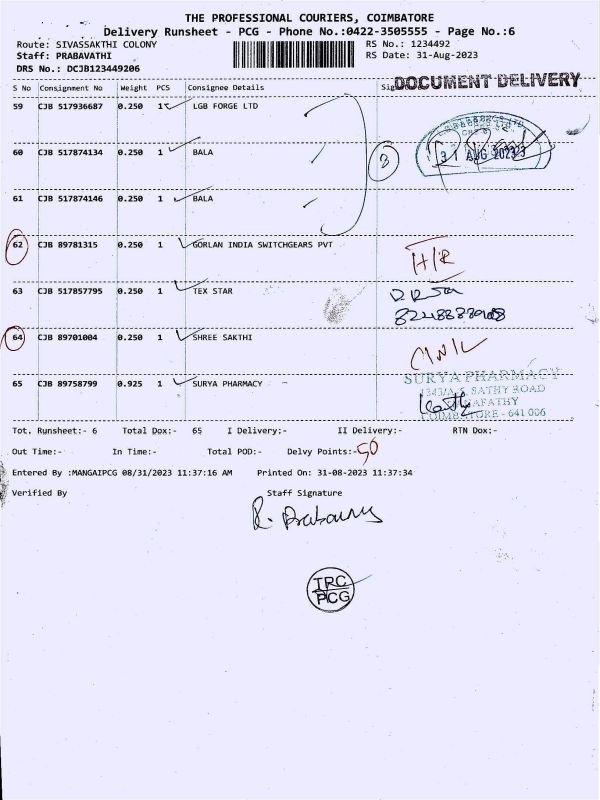 THE PROFESSIONAL COURIERS, COIMBATORE
Delivery Runsheet - PCG - Phone No.:0422-3505555 - Page No.:6
Route: SIVASSAKTHI COLONY RS No.: 1234492
Staff: PRABAVATHI RS Date: 31-Aug-2023
DRS No.: DCJB123449206
DOCUMENT DELIVERY
S No Consignment No Weight PCS Consignee Details
59 CJB 517936687 0.250 1 LGB FORGE LTD
60 CJB 517874134 0.250 1 BALA
3
31 AUG 2023
61 CJB 517874146 0.250 1 BALA
62 CJB 89781315 0.250 1 GORLAN INDIA SWITCHGEARS PVT
H/R
63 CJB 517857795 0.250 1 TEX STAR
64 CJB 89701004 0.250 1 SHREE SAKTHI
65 CJB 89758799 0.925 1 SURYA PHARMACY
SURYA PHARMACY
SATHY ROAD
COIMBATORE - 641 006
Tot. Runsheet:- 6 Total Dox:- 65 I Delivery:- II Delivery:- RTN Dox:-
Out Time:- In Time:- Total POD:- Delvy Points:- 50
Entered By :MANGAIPCG 08/31/2023 11:37:16 AM Printed On: 31-08-2023 11:37:34
Verified By Staff Signature
TRC
PCG